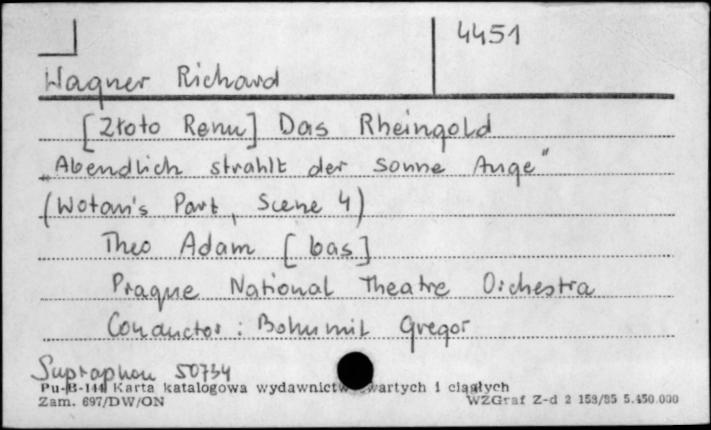 4451
Wagner Richard
[Złoto Renu] Das Rheingold
„Abendlich strahlt der Sonne Auge"
(Wotan's Part, Scene 4)
Theo Adam [bas]
Prague National Theatre Orchestra
Conductor: Bohumil Gregor
Supraphon 50734
Pu-B-144 Karta katalogowa wydawnictw zwartych i ciągłych
Zam. 697/DW/ON WZGraf Z-d 2 158/85 5.450.000